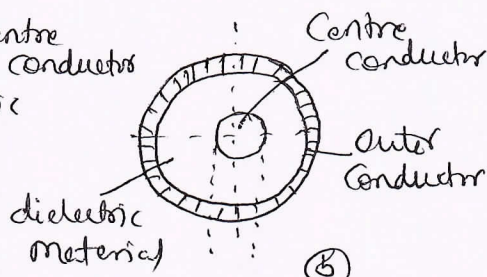 entre
conductor
ic
Centre
conductor
Outer
Conductor
dielectric
Material
(b)